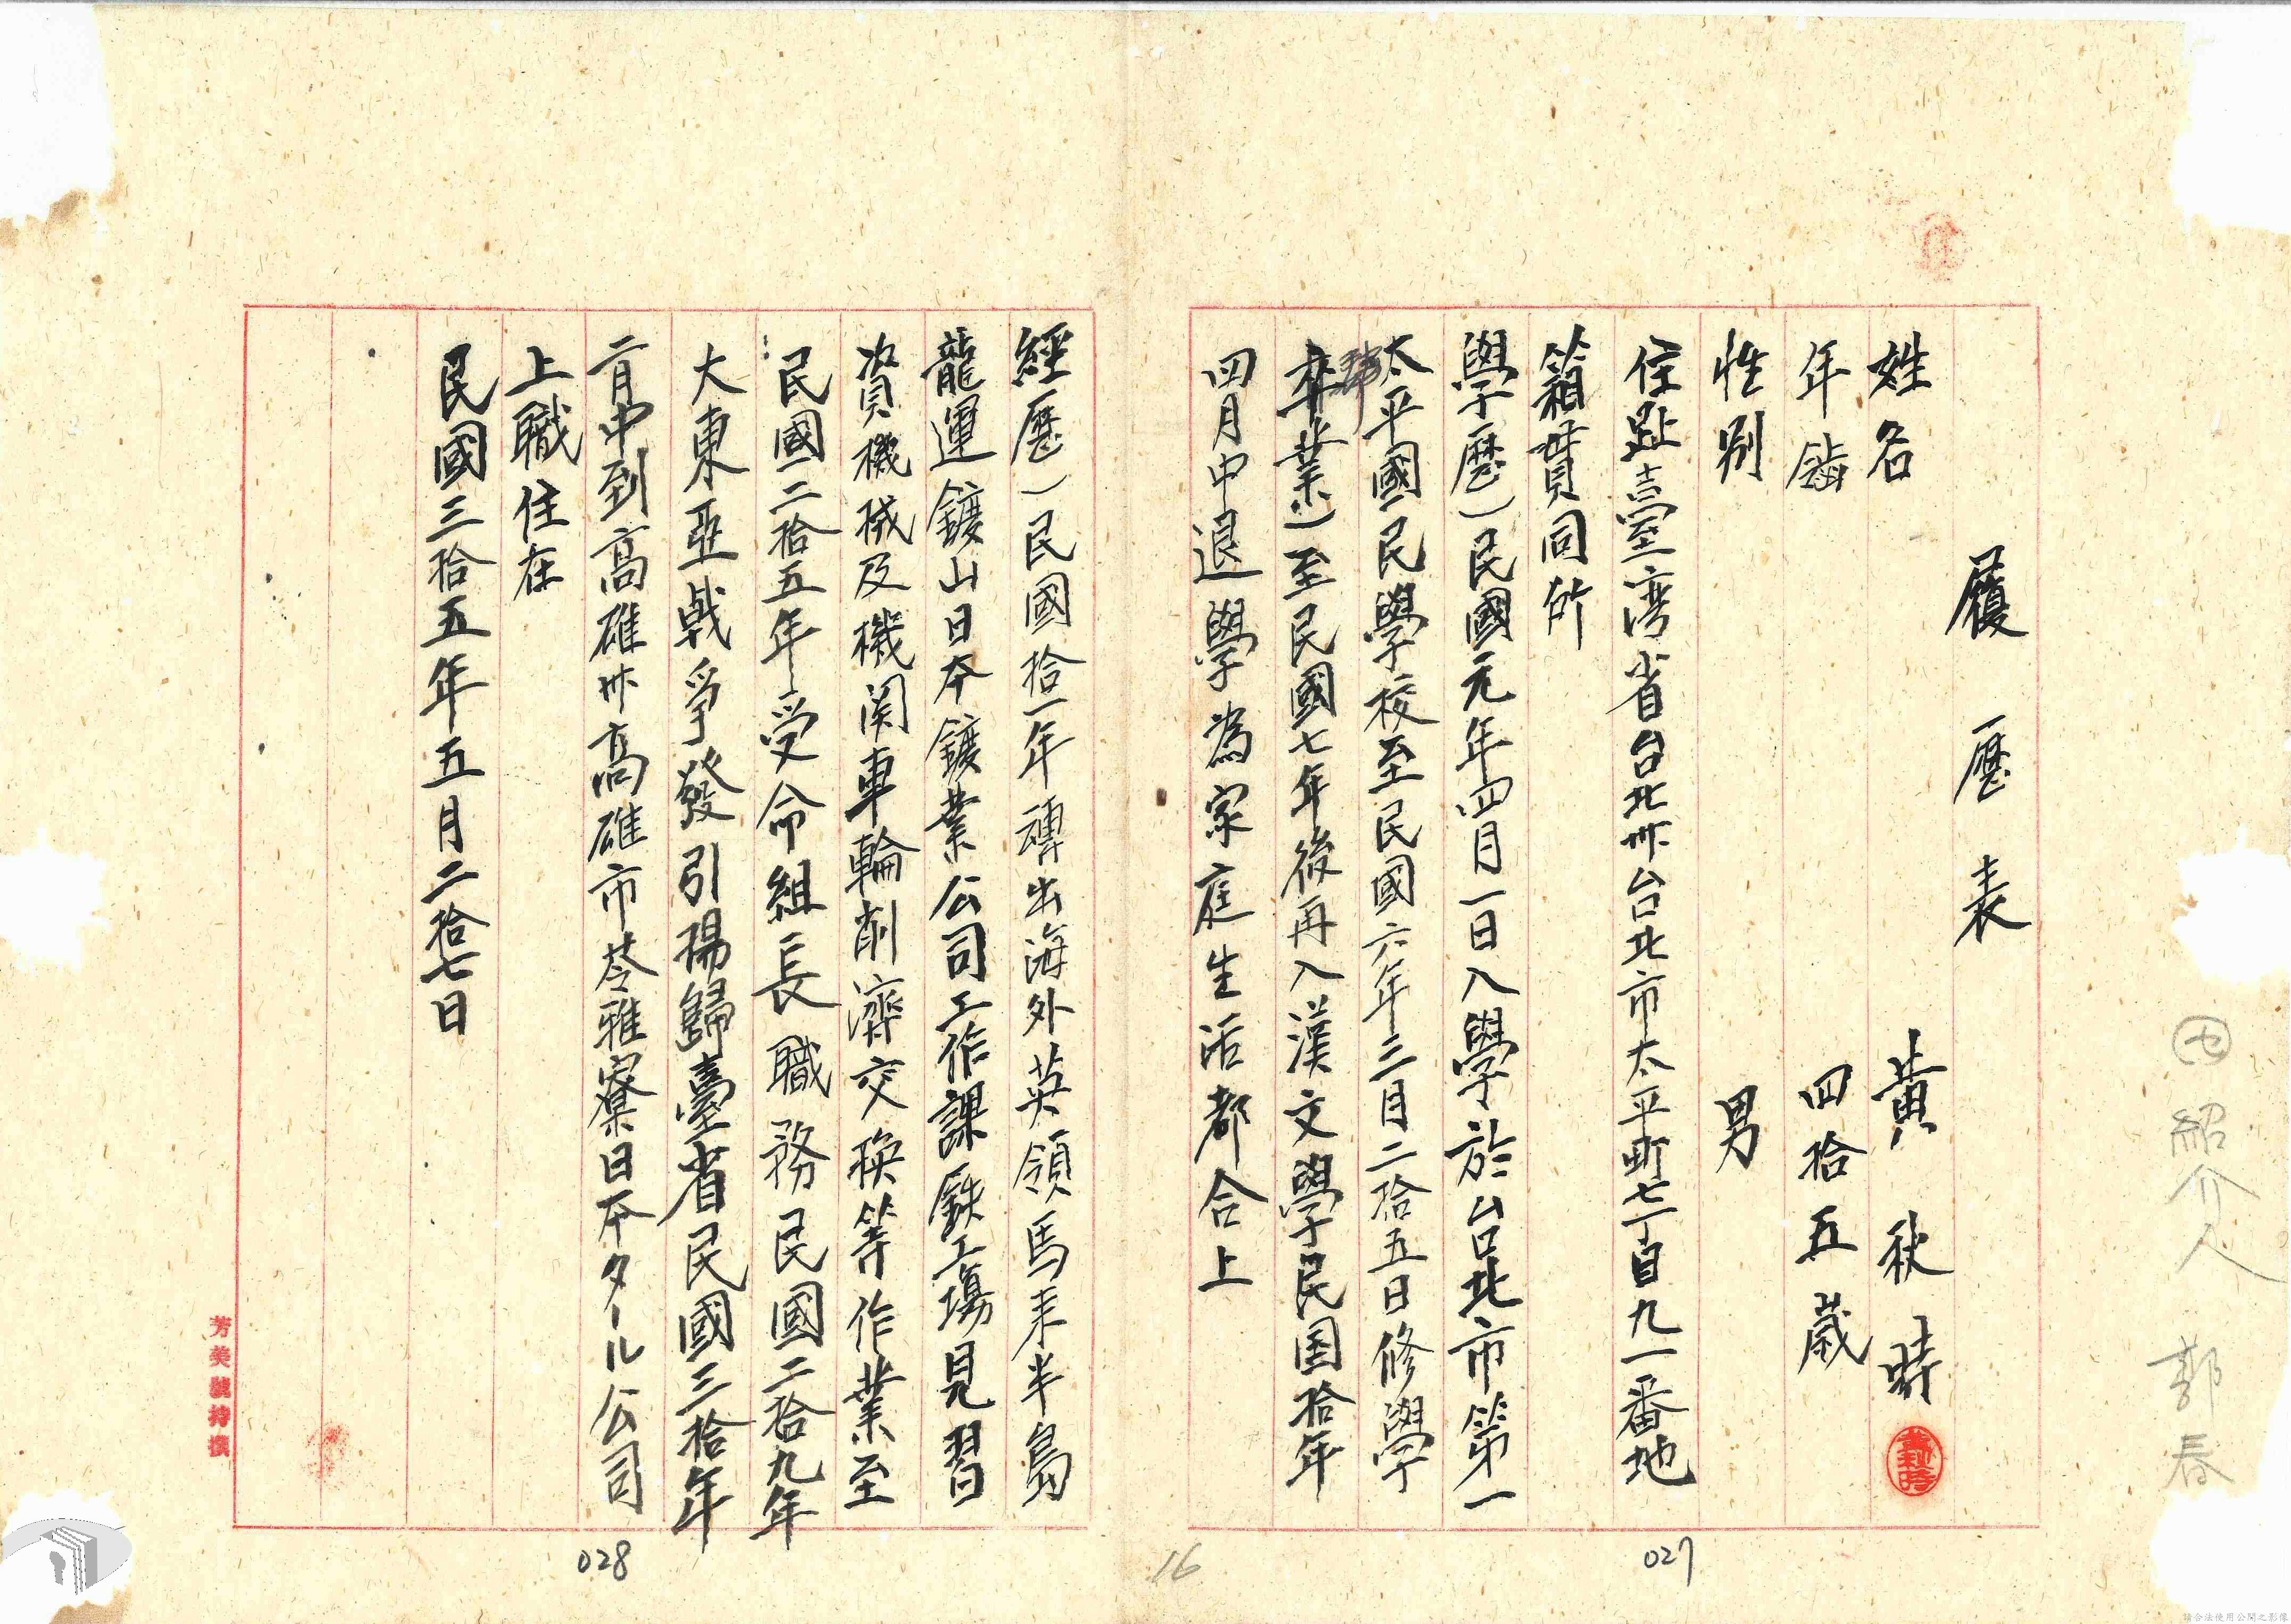 履歷表
姓名 黃秋時
年齡 四拾五歲
性別 男
住趾臺湾省台北州台北市太平町七丁目九一番地
籍貫同所
學歷)民國元年四月一日入學於台北市第一
太平國民學校至民國六年三月二拾五日修學
卒業)至民國七年後再入漢文學民国拾年
四月中退學為家庭生活都合上
經歷)民國拾一年轉出海外英領馬来半島
龍運鑛山日本鑛業公司工作課鉄工場見習
資機械及機関車輪削濟交換等作業至
民國二拾五年受命組長職務民國二拾九年
大東亞戦爭發引揚歸臺省民國三拾年
二月中到高雄州高雄市苓雅寮日本タール公司
上職住在
民國三拾五年五月二拾七日
黃秋時
紹介人 郭春
芳美號特撰
028
16
027